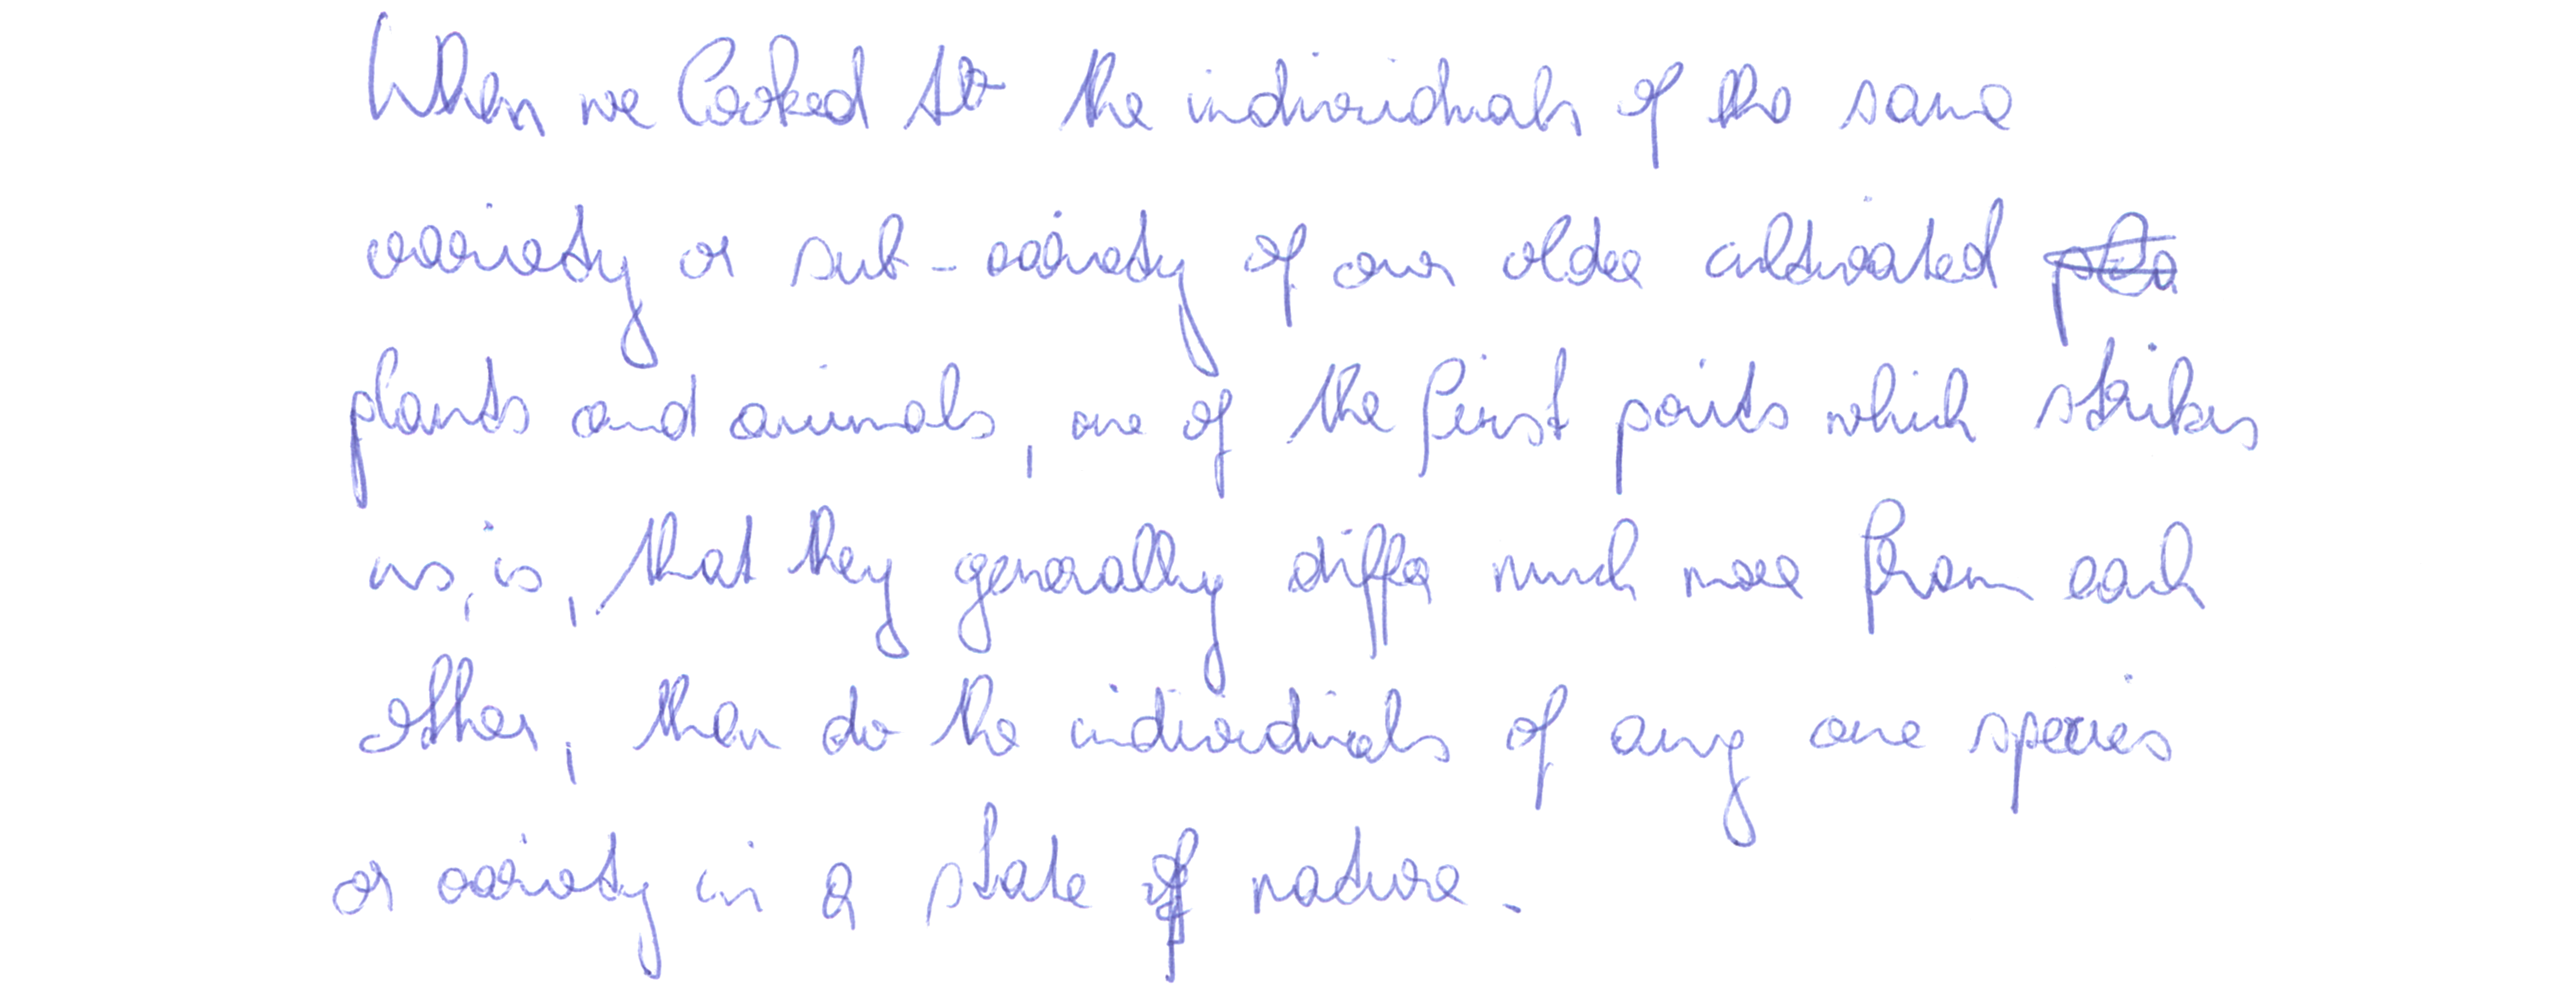 When we looked to the individuals of the same
variety or sub-variety of our older cultivated
plants and animals, one of the first points which strikes
us, is, that they generally differ much more from each
other, than do the individuals of any one species
or variety in a state of nature.